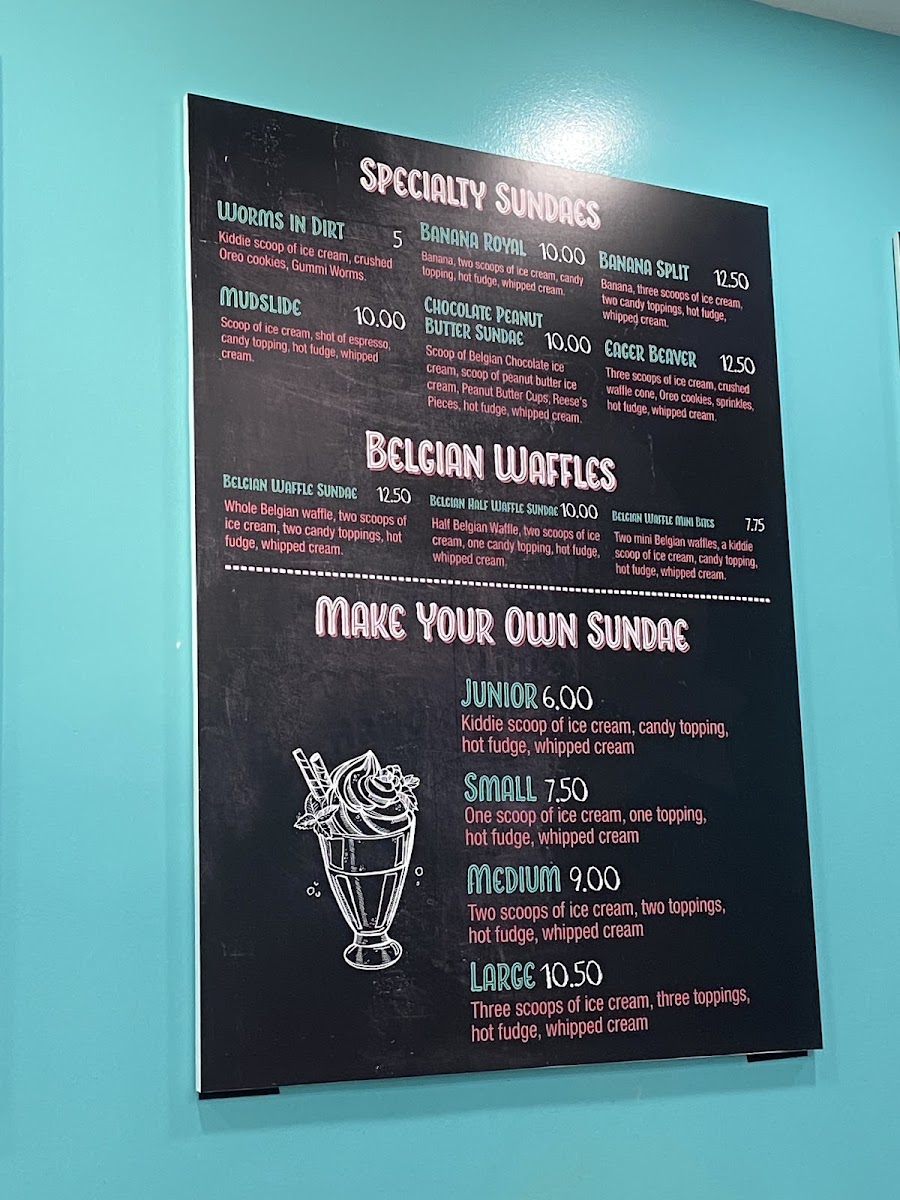 Specialty Sundaes
Worms in Dirt 5
Kiddie scoop of ice cream, crushed
Oreo cookies, Gummi Worms.
Banana Royal 10.00
Banana, two scoops of ice cream, candy
topping, hot fudge, whipped cream.
Banana Split 12.50
Banana, three scoops of ice cream,
two candy toppings, hot fudge,
whipped cream.
Mudslide 10.00
Scoop of ice cream, shot of espresso,
candy topping, hot fudge, whipped
cream.
Chocolate Peanut
Butter Sundae 10.00
Scoop of Belgian Chocolate ice
cream, scoop of peanut butter ice
cream, Peanut Butter Cups, Reese's
Pieces, hot fudge, whipped cream.
Eager Beaver 12.50
Three scoops of ice cream, crushed
waffle cone, Oreo cookies, sprinkles,
hot fudge, whipped cream.
Belgian Waffles
Belgian Waffle Sundae 12.50
Whole Belgian waffle, two scoops of
ice cream, two candy toppings, hot
fudge, whipped cream.
Belgian Half Waffle Sundae 10.00
Half Belgian Waffle, two scoops of ice
cream, one candy topping, hot fudge,
whipped cream.
Belgian Waffle Mini Bites 7.75
Two mini Belgian waffles, a kiddie
scoop of ice cream, candy topping,
hot fudge, whipped cream.
Make Your Own Sundae
Junior 6.00
Kiddie scoop of ice cream, candy topping,
hot fudge, whipped cream
Small 7.50
One scoop of ice cream, one topping,
hot fudge, whipped cream
Medium 9.00
Two scoops of ice cream, two toppings,
hot fudge, whipped cream
Large 10.50
Three scoops of ice cream, three toppings,
hot fudge, whipped cream